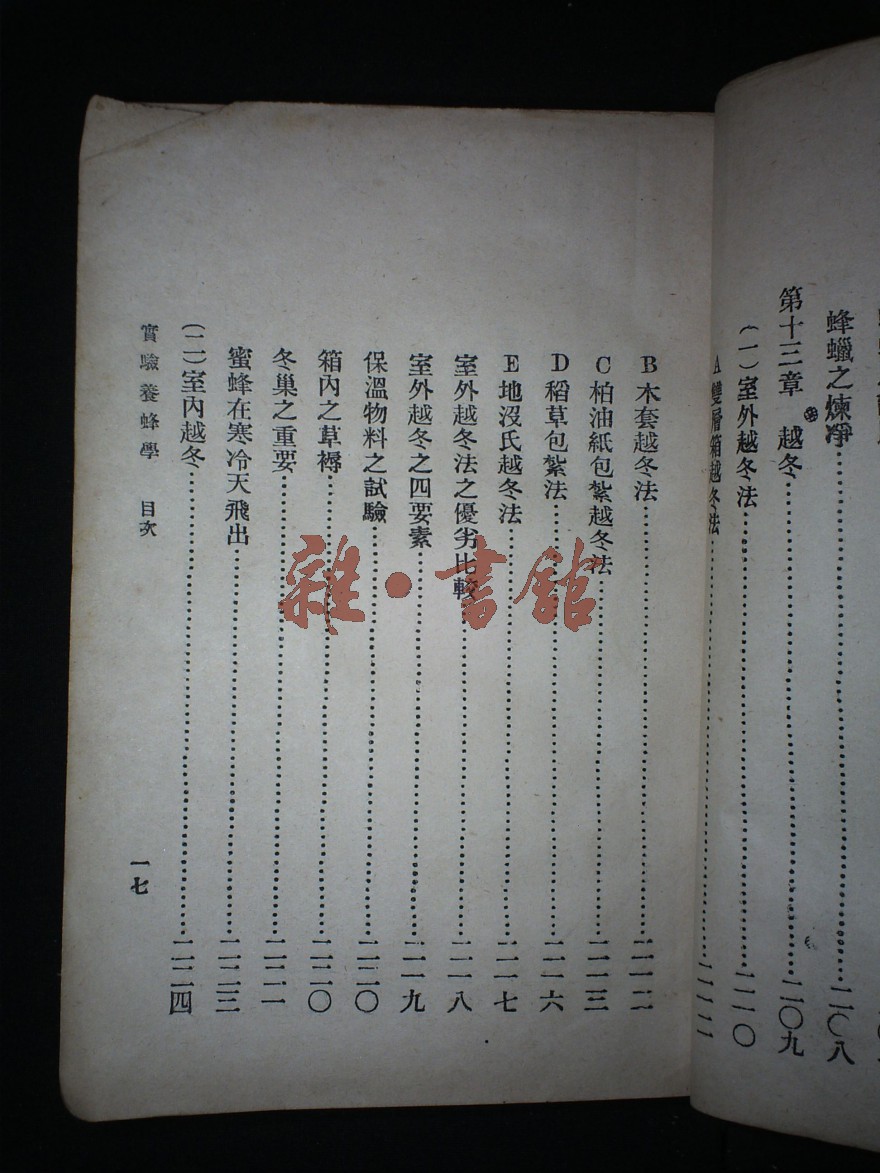 蜂蠟之煉淨……二〇八
第十三章　越冬……二〇九
(一)室外越冬法……二一〇
A 雙層箱越冬法……二一二
B 木套越冬法……二一二
C 柏油紙包紮越冬法……二一三
D 稻草包紮法……二一六
E 地沒氏越冬法……二一七
室外越冬法之優劣比較……二一八
室外越冬之四要素……二一九
保溫物料之試驗……二二〇
箱內之草褥……二二〇
冬巢之重要……二二一
蜜蜂在寒冷天飛出……二二三
(二)室內越冬……二二四
實驗養蜂學　目次
一七
雜・書館